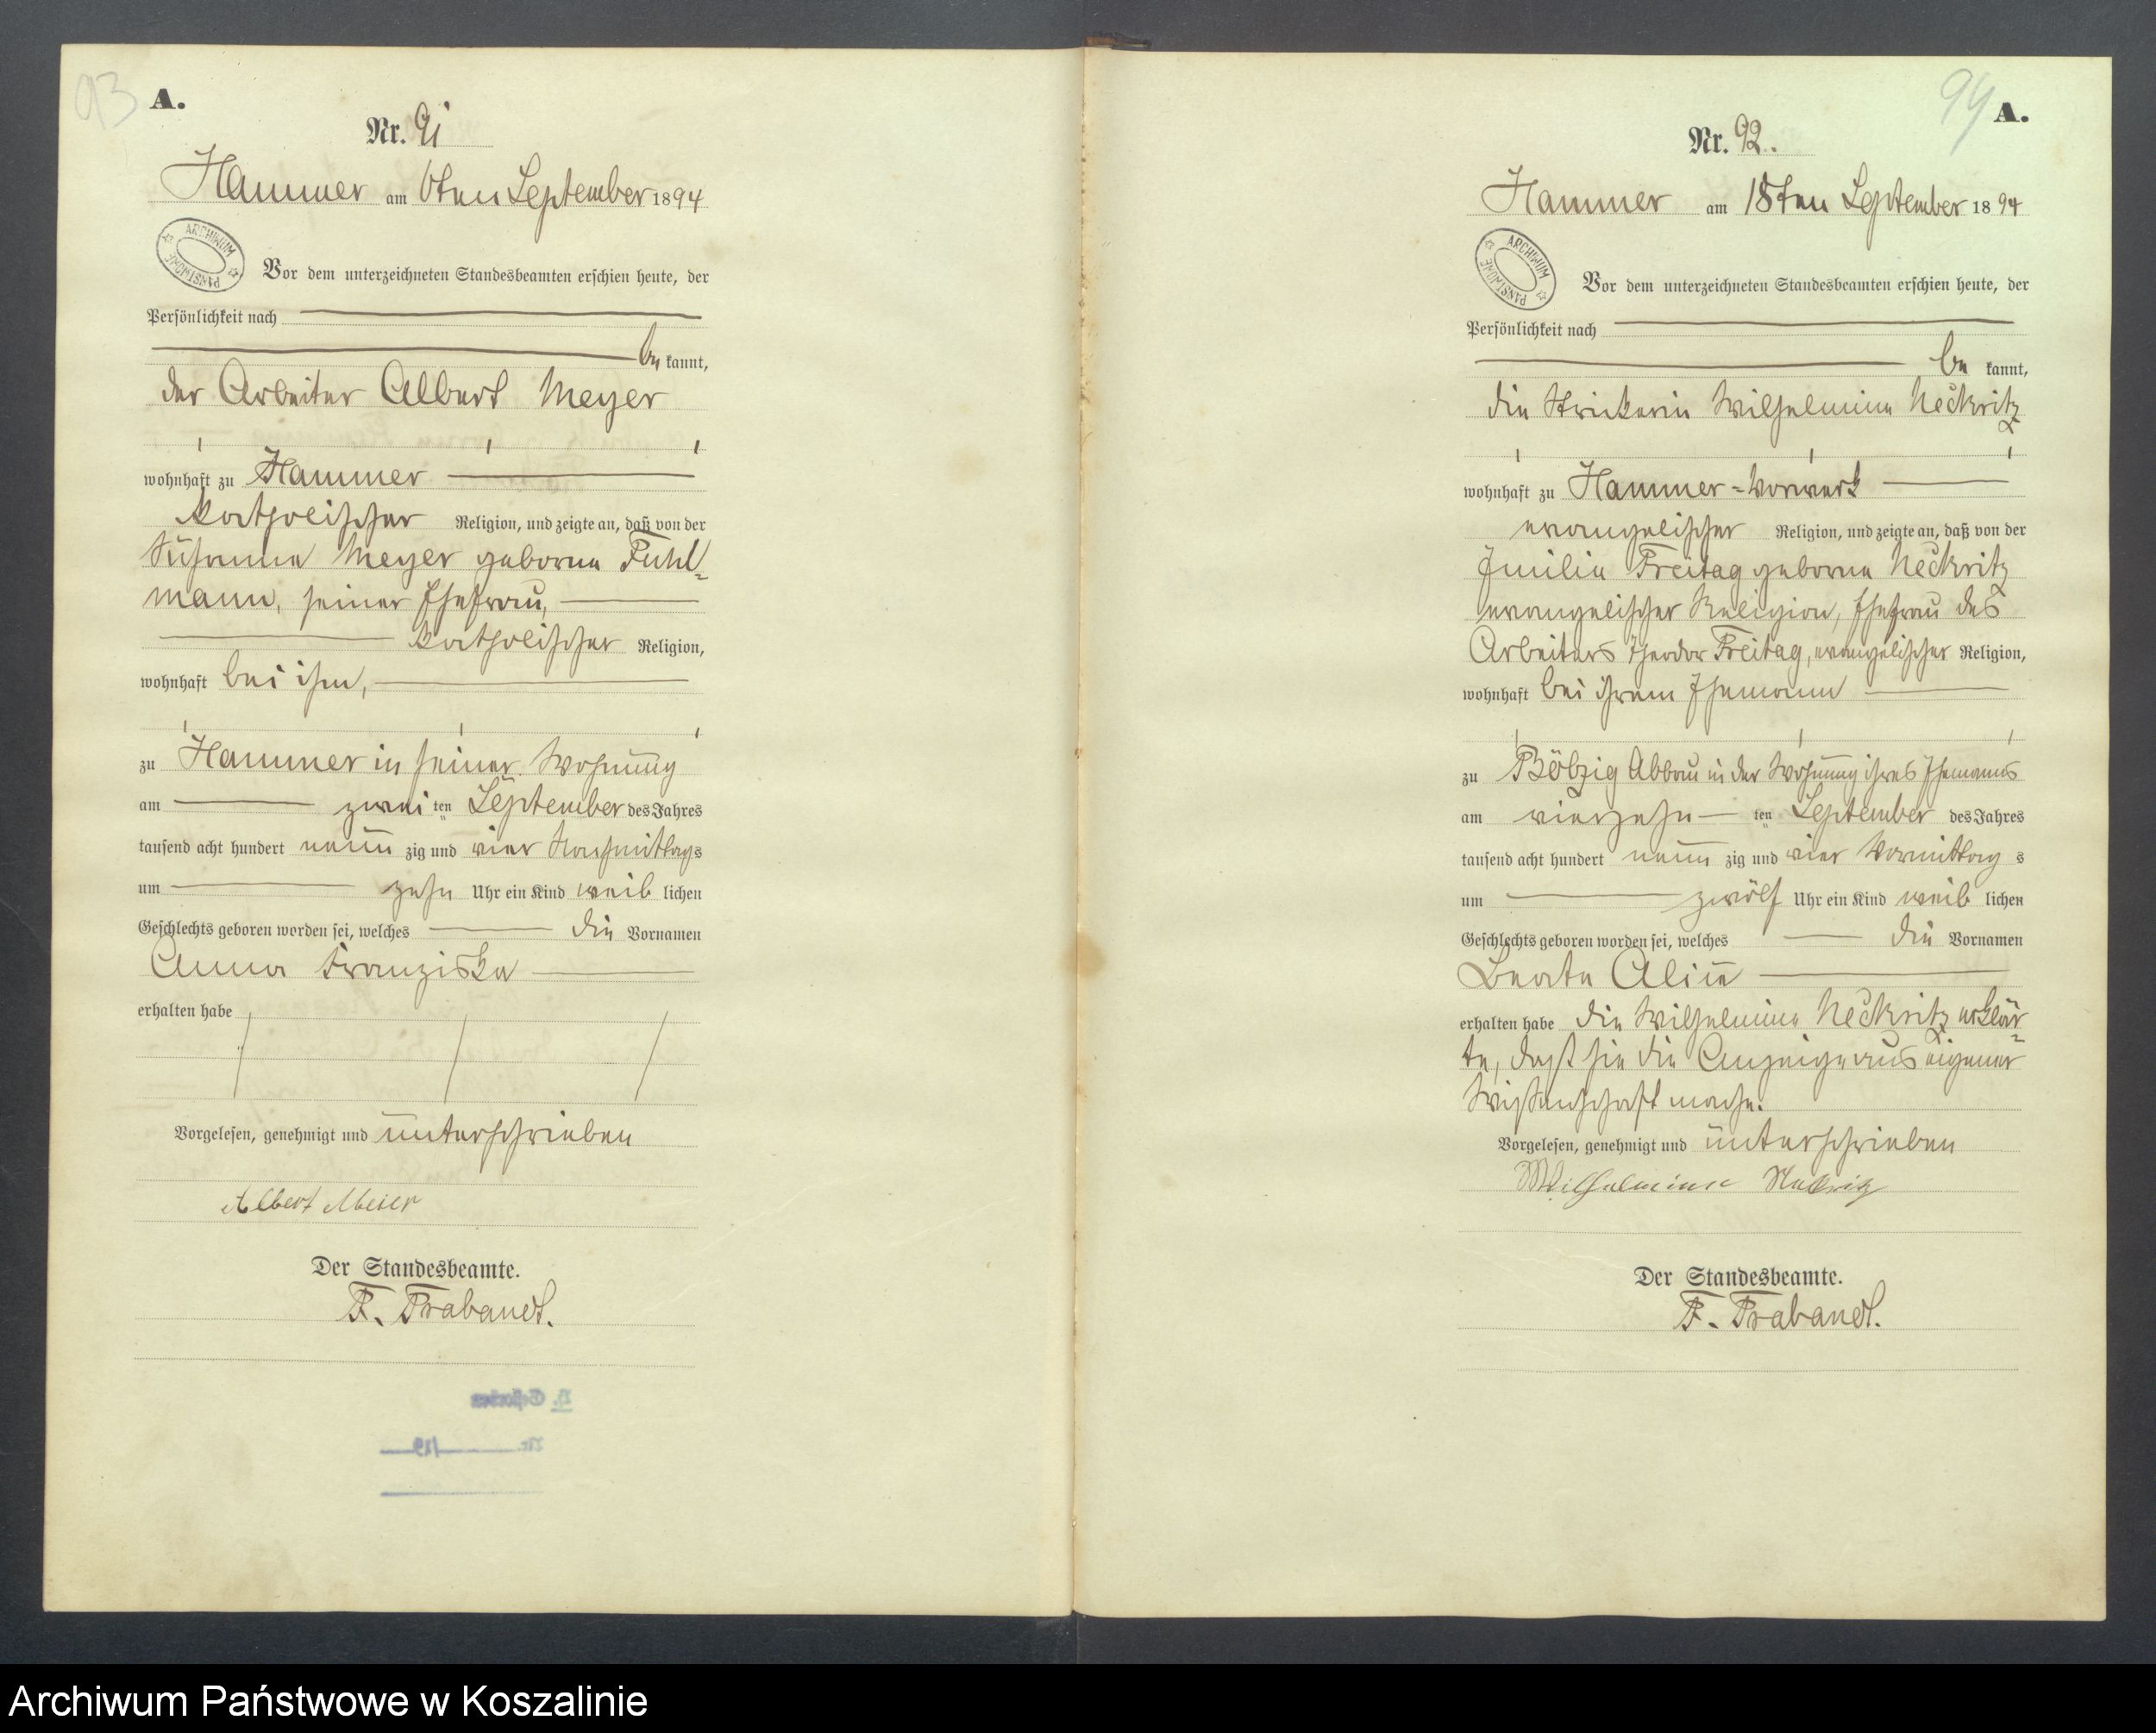 93
A.
Nr. 91
Hammer am 6ten September 1894
ARCHIWUM PAŃSTWOWE
Vor dem unterzeichneten Standesbeamten erschien heute, der
Persönlichkeit nach
be kannt,
der Arbeiter Albert Meyer
wohnhaft zu Hammer
katholischer Religion, und zeigte an, daß von der
Susanna Meyer geborne Fuhl=
mann, seiner Ehefrau,
katholischer Religion,
wohnhaft bei ihm,
zu Hammer in seiner Wohnung
am zwei ten September des Jahres
tausend acht hundert neun zig und vier Nachmittags
um zehn Uhr ein Kind weib lichen
Geschlechts geboren worden sei, welches die Vornamen
Anna Franziska
erhalten habe
Vorgelesen, genehmigt und unterschrieben
Albert Meier
Der Standesbeamte.
F. Trabandt.
94
A.
Nr. 92.
Hammer am 18ten September 1894
ARCHIWUM PAŃSTWOWE
Vor dem unterzeichneten Standesbeamten erschien heute, der
Persönlichkeit nach
be kannt,
die Strickerin Wilhelmine Neckritz
wohnhaft zu Hammer=Vorwerk
evangelischer Religion, und zeigte an, daß von der
Emilie Freitag geborne Neckritz
evangelischer Religion, Ehefrau des
Arbeiters Theodor Freitag, evangelischer Religion,
wohnhaft bei ihrem Ehemann
zu Böbzig Abbau in der Wohnung ihres Ehemanns
am vierzehn ten September des Jahres
tausend acht hundert neun zig und vier Vormittag s
um zwölf Uhr ein Kind weib lichen
Geschlechts geboren worden sei, welches die Vornamen
Beate Aline
erhalten habe die Wilhelmine Neckritz erklär=
te, daß sie die Anzeige aus eigener
Wissenschaft mache.
Vorgelesen, genehmigt und unterschrieben
Wilhelmine Neckritz
Der Standesbeamte.
F. Trabandt.
Archiwum Państwowe w Koszalinie